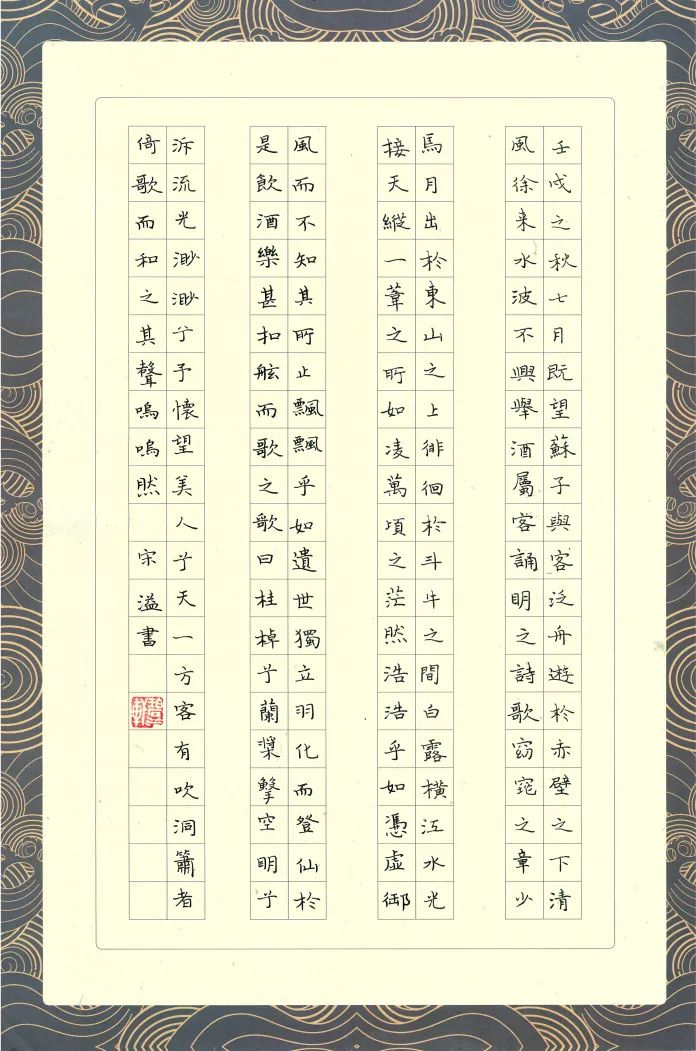 壬戌之秋七月既望蘇子與客泛舟遊於赤壁之下清
風徐来水波不興舉酒屬客誦明之詩歌窈窕之章少
馬月出於東山之上徘徊於斗牛之間白露橫江水光
接天縱一葦之所如凌萬頃之茫然浩浩乎如憑虛御
風而不知其所止飄飄乎如遺世獨立羽化而登仙於
是飲酒樂甚扣舷而歌之歌曰桂棹兮蘭槳擊空明兮
泝流光渺渺兮予懷望美人兮天一方客有吹洞簫者
倚歌而和之其聲嗚嗚然 宋溢書